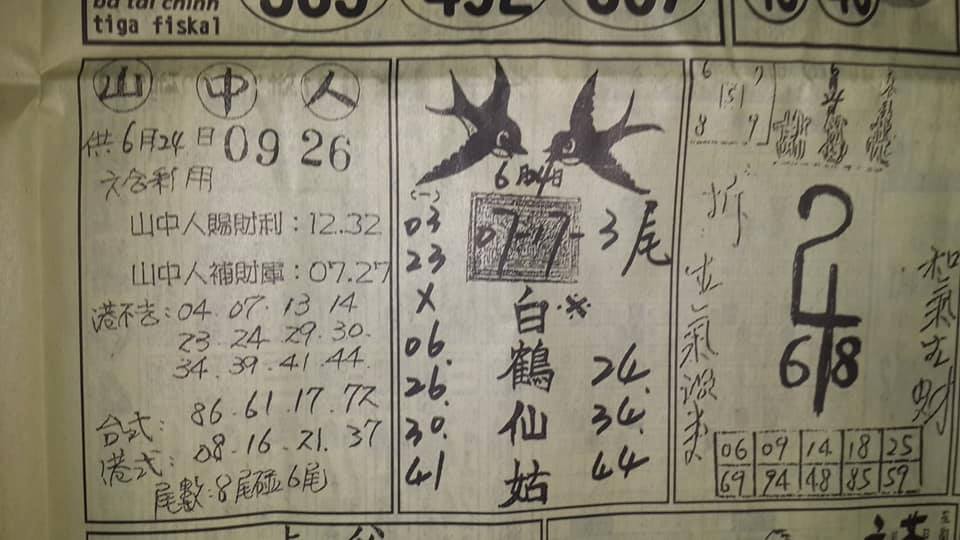 tiga fiskal
山 中 人
供6月24日 09 26
六合利用
山中人賜財利：12.32
山中人補財庫：07.27
港不吉：04.07.13 14
23.24.29.30.
34.39.41.44.
台式：86.61.17.72
港式：08.16.21.37
尾數：8尾碰6尾
6月24日
(一)
03
23
X
06.
26.
30.
41
07-17-3尾
白鶴仙姑
24.
34.
44
6 7
151
8 9
2
4
68
和氣生財
06 09 14 18 25
69 94 48 85 59